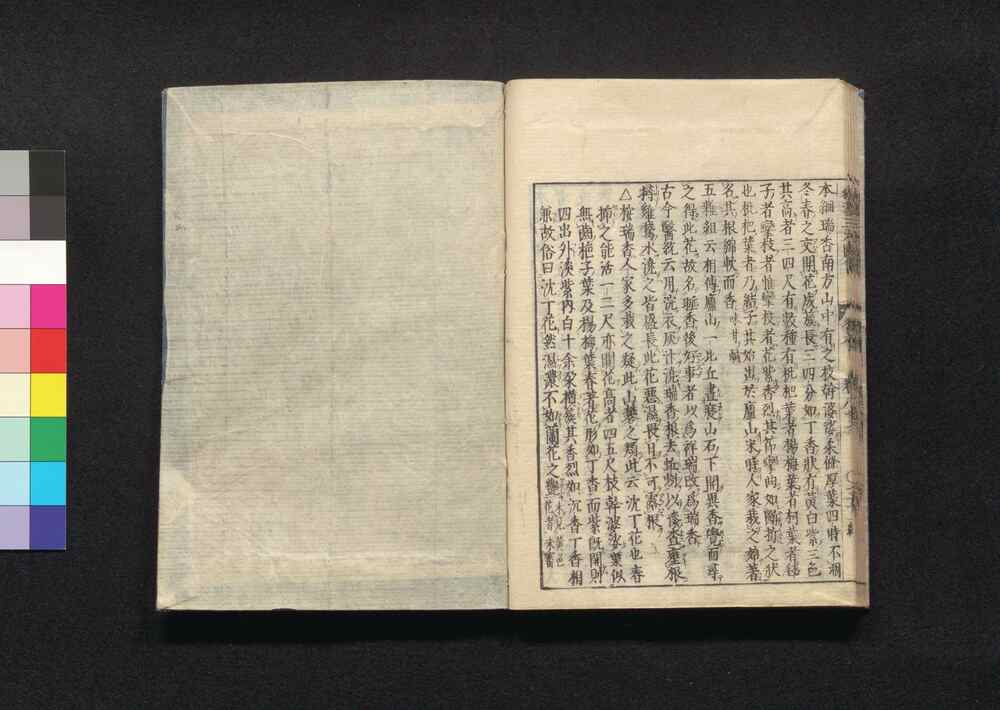 本綱瑞香南方山中有之枝幹婆娑柔條厚葉四時不凋
冬春之交開花成簇長三四分如丁香狀有黃白紫三色
其高者三四尺有數種有枇杷葉者楊梅葉者柯葉者毬
子者攣枝者惟攣枝者花紫香烈其節攣曲如斷折之狀
也枇杷葉者乃結子其始出於廬山宋時人家栽之始著
名其根綿軟而香 味甘鹹
五雜組云相傳廬山一比丘晝寢山石下聞異香覺而尋
之得此花故名睡香後好事者以爲祥瑞改爲瑞香
古今醫統云用浣衣灰汁澆瑞香根去蚯蚓以漆查壅根
撏雞鵞水澆之皆盛長此花惡濕畏日不可露根
△按瑞香人家多栽之疑此山礬之類此云沈丁花也春
揷之能活一二尺亦開花高者四五尺枝幹婆娑葉似
無齒梔子葉及楊梅葉春著花形如丁香而紫既開則
四出外淡紫內白十余朶攢簇其香烈如沉香丁香相
兼故俗曰沈丁花然濕濃不如蘭花之艷